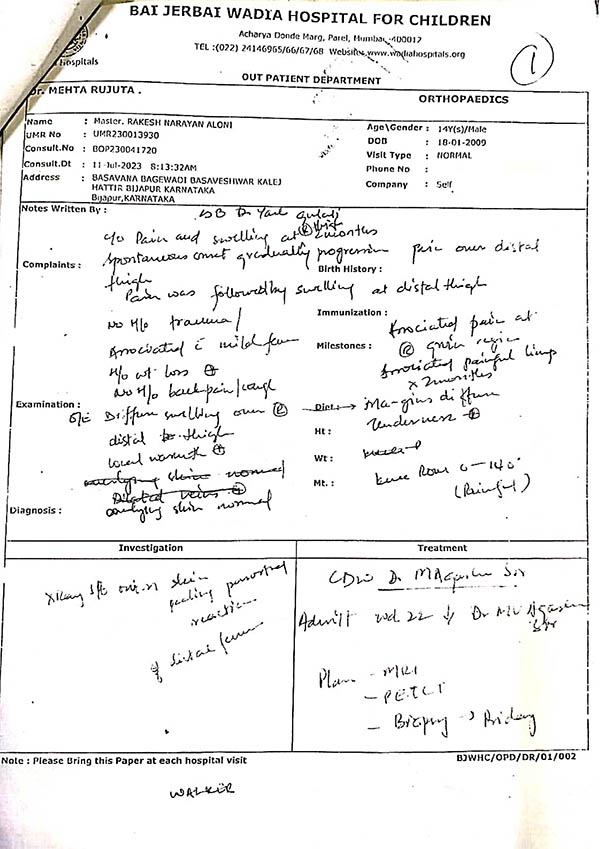 BAI JERBAI WADIA HOSPITAL FOR CHILDREN
Acharya Donde Marg, Parel, Mumbai-400012
TEL :(022) 24146965/66/67/68 Website: www.wadiahospitals.org
Hospitals
OUT PATIENT DEPARTMENT
1
Dr. MEHTA RUJUTA .
ORTHOPAEDICS
Name : Master. RAKESH NARAYAN ALONI
Age\Gender : 14Y(s)/Male
UMR No : UMR230013930
DOB : 18-01-2009
Consult.No : BOP230041720
Visit Type : NORMAL
Consult.Dt : 11-Jul-2023 8:13:32AM
Phone No :
Address : BASAVANA BAGEWADI BASAVESHWAR KALEJ
HATTIR BIJAPUR KARNATAKA
Bijapur,KARNATAKA
Company : Self
Notes Written By : S/B Dr Yash
c/o Pain and swelling at 2 months
Complaints : Spontaneous onset gradually progression pain over distal
thigh
Birth History :
Pain was followed by swelling at distal thigh
Immunization :
No H/o trauma
Associated pain at
Associated c mild fever
Milestones : (R) groin region
H/o wt loss +
Associated painful limp
x 2 months
No H/o back pain/cough
Examination :
O/E Diffuse swelling over (R)
Diet : Margins diffuse
distal to thigh
Ht : Tenderness +
local warmth +
Wt :
overlying skin normal
Dilated veins +
Mt. : Knee ROM 0-140°
(Painful)
Diagnosis : overlying skin normal
Investigation
Treatment
Xray S/o
peeling periosteal
reaction
of distal femur
CDW Dr MAgashe Sir
Admit wd 22 ↓ Dr MV Agashe
Sir
Plan - MRI
- PETCT
- Biopsy → Friday
Note : Please Bring this Paper at each hospital visit
BJWHC/OPD/DR/01/002
WALKER